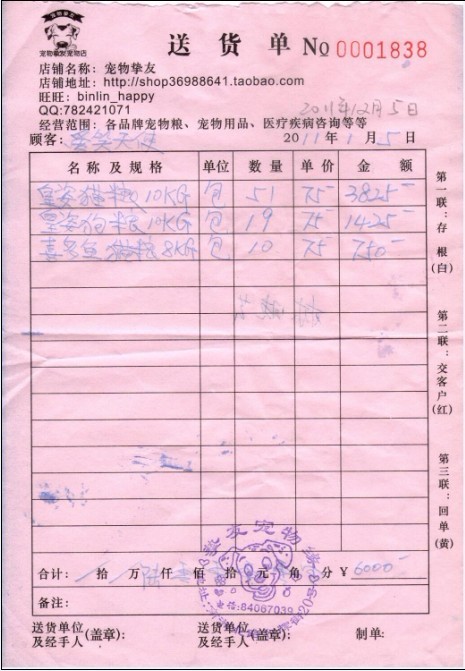 宠物挚友宠物店
送货单 No 0001838
店铺名称：宠物挚友
店铺地址：http://shop36988641.taobao.com
旺旺：binlin_happy
QQ:782421071
2011年12月5日
经营范围：各品牌宠物粮、宠物用品、医疗疾病咨询等等
顾客： 天使 2011年1月5日
名称及规格 单位 数量 单价 金额
皇姿猫粮10KG 包 51 75 3825-
皇姿狗粮10KG 包 19 75 1425-
喜多鱼猫粮8KG 包 10 75 750-
合计： 拾 万 陆仟 佰 拾 元 角 分 ￥6000-
备注：
送货单位及经手人(盖章)：
收货单位及经手人(盖章)：
制单：
第一联：存根(白)
第二联：交客户(红)
第三联：回单(黄)
挚友宠物
84067039